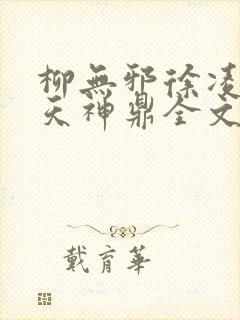 柳無邪徐凌
天神鼎全文
戴育華